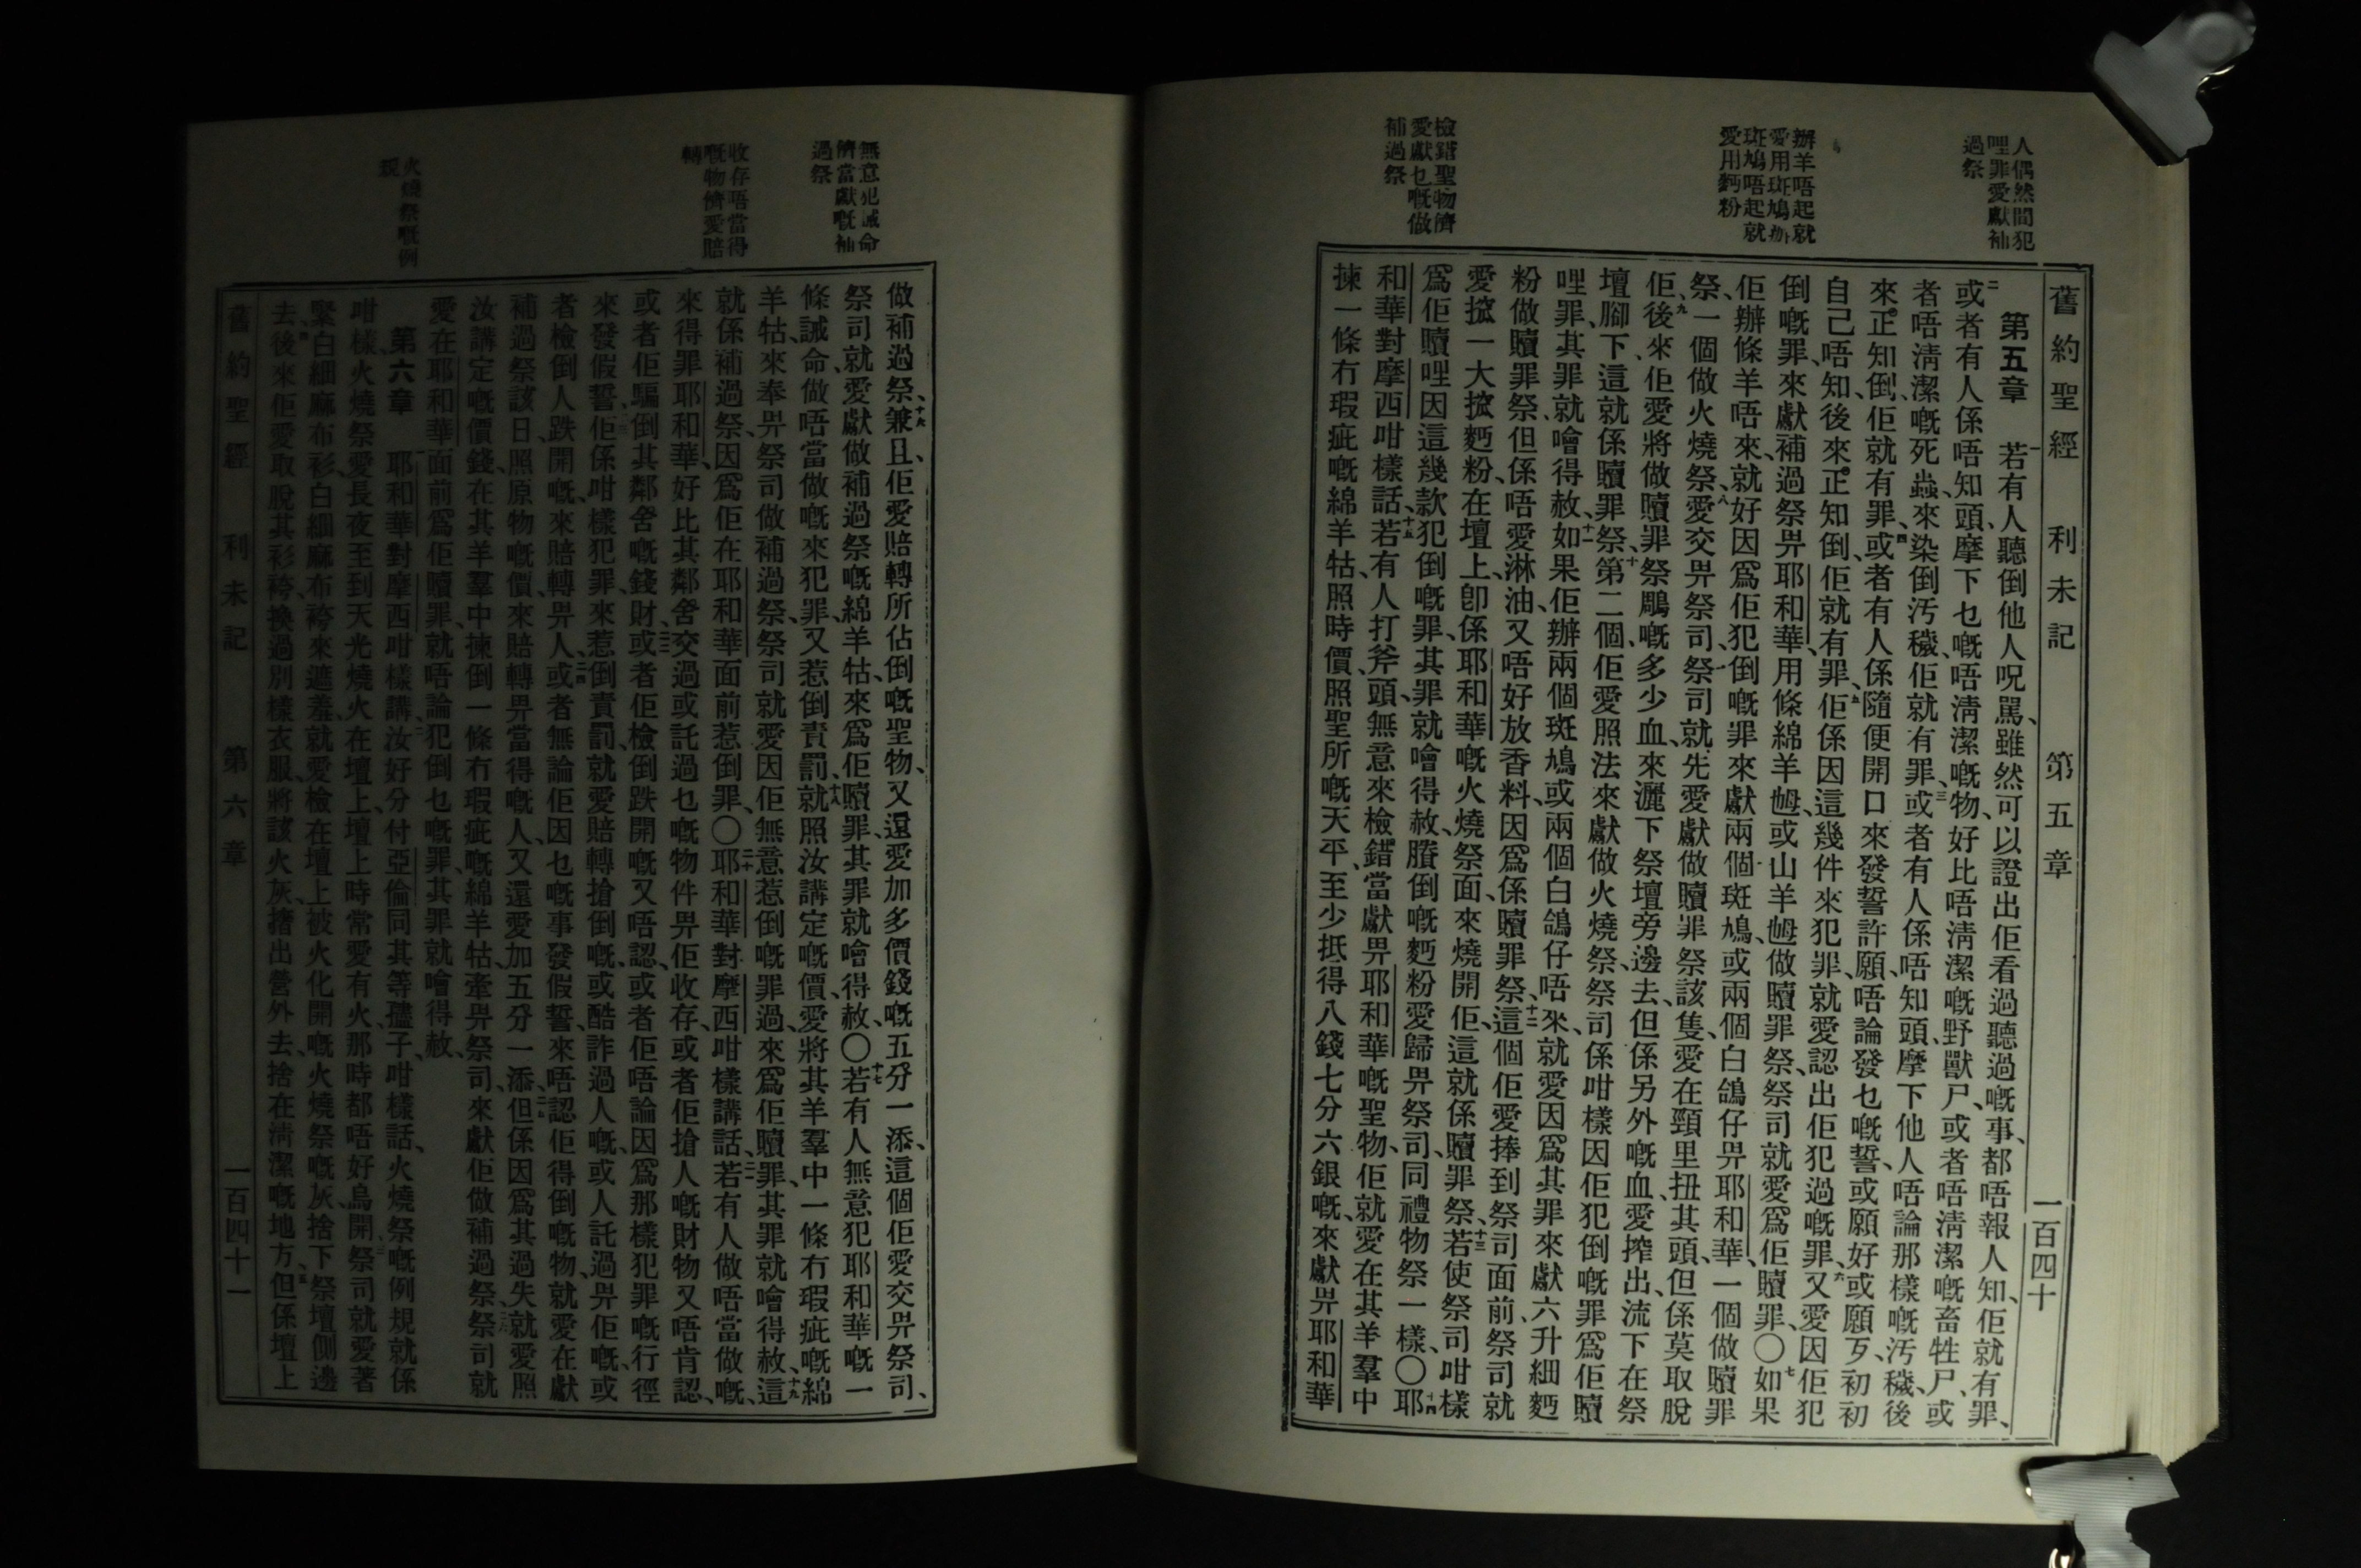 人偶然間犯
哩罪愛獻補
過祭
辦羊唔起就
愛用斑鳩辦
斑鳩唔起就
愛用麪粉
檢錯聖物儕
愛獻乜嘅做
補過祭
舊約聖經 利未記 第五章 一百四十
第五章 一若有人聽倒他人呪駡、雖然可以證出佢看過聽過嘅事、都唔報人知、佢就有罪、
二或者有人係唔知頭、摩下乜嘅唔淸潔嘅物、好比唔淸潔嘅野獸尸、或者唔淸潔嘅畜牲尸、或
者唔淸潔嘅死蟲、來染倒汚穢、佢就有罪、三或者有人係唔知頭、摩下他人唔論那樣嘅汚穢、後
來正知倒、佢就有罪、四或者有人係隨便開口來發誓許願、唔論發乜嘅誓、或願好或願歹、初初
自己唔知、後來正知倒、佢就有罪、五佢係因這幾件來犯罪、就愛認出佢犯過嘅罪、六又愛因佢犯
倒嘅罪、來獻補過祭畀耶和華、用條綿羊𡜵或山羊𡜵做贖罪祭、祭司就愛爲佢贖罪、〇七如果
佢辦條羊唔來、就好因爲佢犯倒嘅罪來獻兩個斑鳩、或兩個白鴿仔畀耶和華、一個做贖罪
祭、一個做火燒祭、八愛交畀祭司、祭司就先愛獻做贖罪祭該隻、愛在頸里扭其頭、但係莫取脫
佢、九後來佢愛將做贖罪祭鵰嘅多少血、來灑下祭壇旁邊去、但係另外嘅血、愛搾出流下在祭
壇腳下、這就係贖罪祭、十第二個、佢愛照法來獻做火燒祭、祭司係咁樣因佢犯倒嘅罪爲佢贖
哩罪、其罪就噲得赦、十一如果佢辦兩個斑鳩或兩個白鴿仔唔來、就愛因爲其罪來獻六升細麪
粉做贖罪祭、但係唔愛淋油、又唔好放香料、因爲係贖罪祭、十二這個佢愛捧到祭司面前、祭司就
愛搲一大搲麪粉、在壇上、卽係耶和華嘅火燒祭面、來燒開佢、這就係贖罪祭、十三若使祭司咁樣
爲佢贖哩因這幾款犯倒嘅罪、其罪就噲得赦、賸倒嘅麪粉愛歸畀祭司、同禮物祭一樣、〇十四耶
和華對摩西咁樣話、十五若有人打斧頭、無意來檢錯當獻畀耶和華嘅聖物、佢就愛在其羊羣中
揀一條冇瑕疵嘅綿羊牯、照時價、照聖所嘅天平、至少抵得八錢七分六銀嘅、來獻畀耶和華
無意犯誡命
儕當獻嘅補
過祭
收存唔當得
嘅物儕愛賠
轉
火燒祭嘅例
規
做補過祭、十六兼且、佢愛賠轉所佔倒嘅聖物、又還愛加多價錢嘅五分一添、這個佢愛交畀祭司、
祭司就愛獻做補過祭嘅綿羊牯、來爲佢贖罪、其罪就噲得赦、〇十七若有人無意犯耶和華嘅一
條誡命、做唔當做嘅來犯罪、又惹倒責罰、十八就照汝講定嘅價、愛將其羊羣中一條冇瑕疵嘅綿
羊牯、來奉畀祭司做補過祭、祭司就愛因佢無意惹倒嘅罪過、來爲佢贖罪、其罪就噲得赦、十九這
就係補過祭、因爲佢在耶和華面前惹倒罪、〇二十耶和華對摩西咁樣講話、二一若有人做唔當做嘅、
來得罪耶和華、好比其鄰舍交過或託過乜嘅物件畀佢收存、或者佢搶人嘅財物又唔肯認、
或者佢騙倒其鄰舍嘅錢財、二二或者佢檢倒跌開嘅又唔認、或者佢唔論因爲那樣犯罪嘅行徑
來發假誓、二三佢係咁樣犯罪、來惹倒責罰、就愛賠轉搶倒嘅、或酷詐過人嘅、或人託過畀佢嘅、或
者檢倒人跌開嘅、來賠轉畀人、二四或者無論佢因乜嘅事發假誓、來唔認佢得倒嘅物、就愛在獻
補過祭該日、照原物嘅價、來賠轉畀當得嘅人、又還愛加五分一添、二五但係因爲其過失就愛照
汝講定嘅價錢、在其羊羣中揀倒一條冇瑕疵嘅綿羊牯、牽畀祭司、來獻佢做補過祭、二六祭司就
愛在耶和華面前爲佢贖罪、就唔論犯倒乜嘅罪、其罪就噲得赦、
第六章 一耶和華對摩西咁樣講、二汝好分付亞倫同其等孻子、咁樣話、火燒祭嘅例規就係
咁樣、火燒祭愛長夜至到天光燒火在壇上、壇上時常愛有火、那時都唔好烏開、三祭司就愛著
緊白細麻布衫、白細麻布袴來遮羞、就愛檢在壇上被火化開嘅火燒祭嘅灰、捨下祭壇側邊
去、四後來佢愛取脫其衫袴、換過別樣衣服、將該火灰、擔出營外去、捨在淸潔嘅地方、五但係壇上
舊約聖經 利未記 第六章 一百四十一